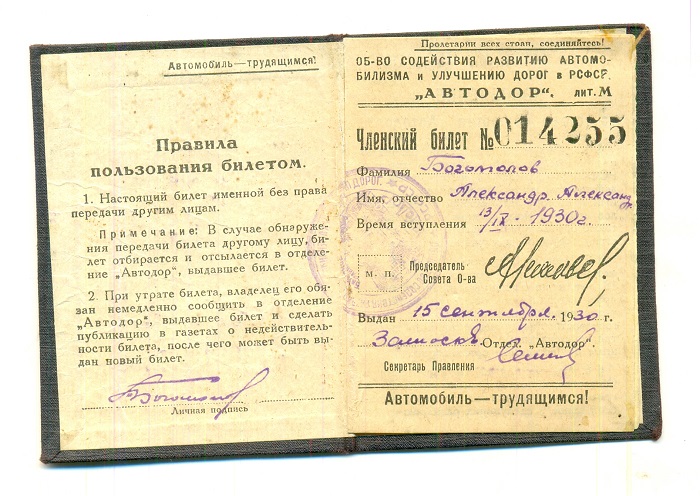 Автомобиль—трудящимся!
Правила
пользования билетом.
1. Настоящий билет именной без права
передачи другим лицам.
Примечание: В случае обнаруже-
ния передачи билета другому лицу, би-
лет отбирается и отсылается в отделе-
ние „Автодор“, выдавшее билет.
2. При утрате билета, владелец его обя-
зан немедленно сообщить в отделение
„Автодор“, выдавшее билет и сделать
публикацию в газетах о недействитель-
ности билета, после чего может быть вы-
дан новый билет.
Богомолов
Личная подпись
Пролетарии всех стран, соединяйтесь!
ОБ-ВО СОДЕЙСТВИЯ РАЗВИТИЮ АВТОМО-
БИЛИЗМА и УЛУЧШЕНИЮ ДОРОГ в РСФСР.
„АВТОДОР“. лит. М
Членский билет № 014255
Фамилия Богомолов
Имя, отчество Александр Александр
Время вступления 13/IX - 1930 г.
М. П.
Председатель
Совета О-ва
Выдан 15 сентября 1930 г.
Замоскв. Отдел. „Автодор“.
Секретарь Правления
Автомобиль—трудящимся!